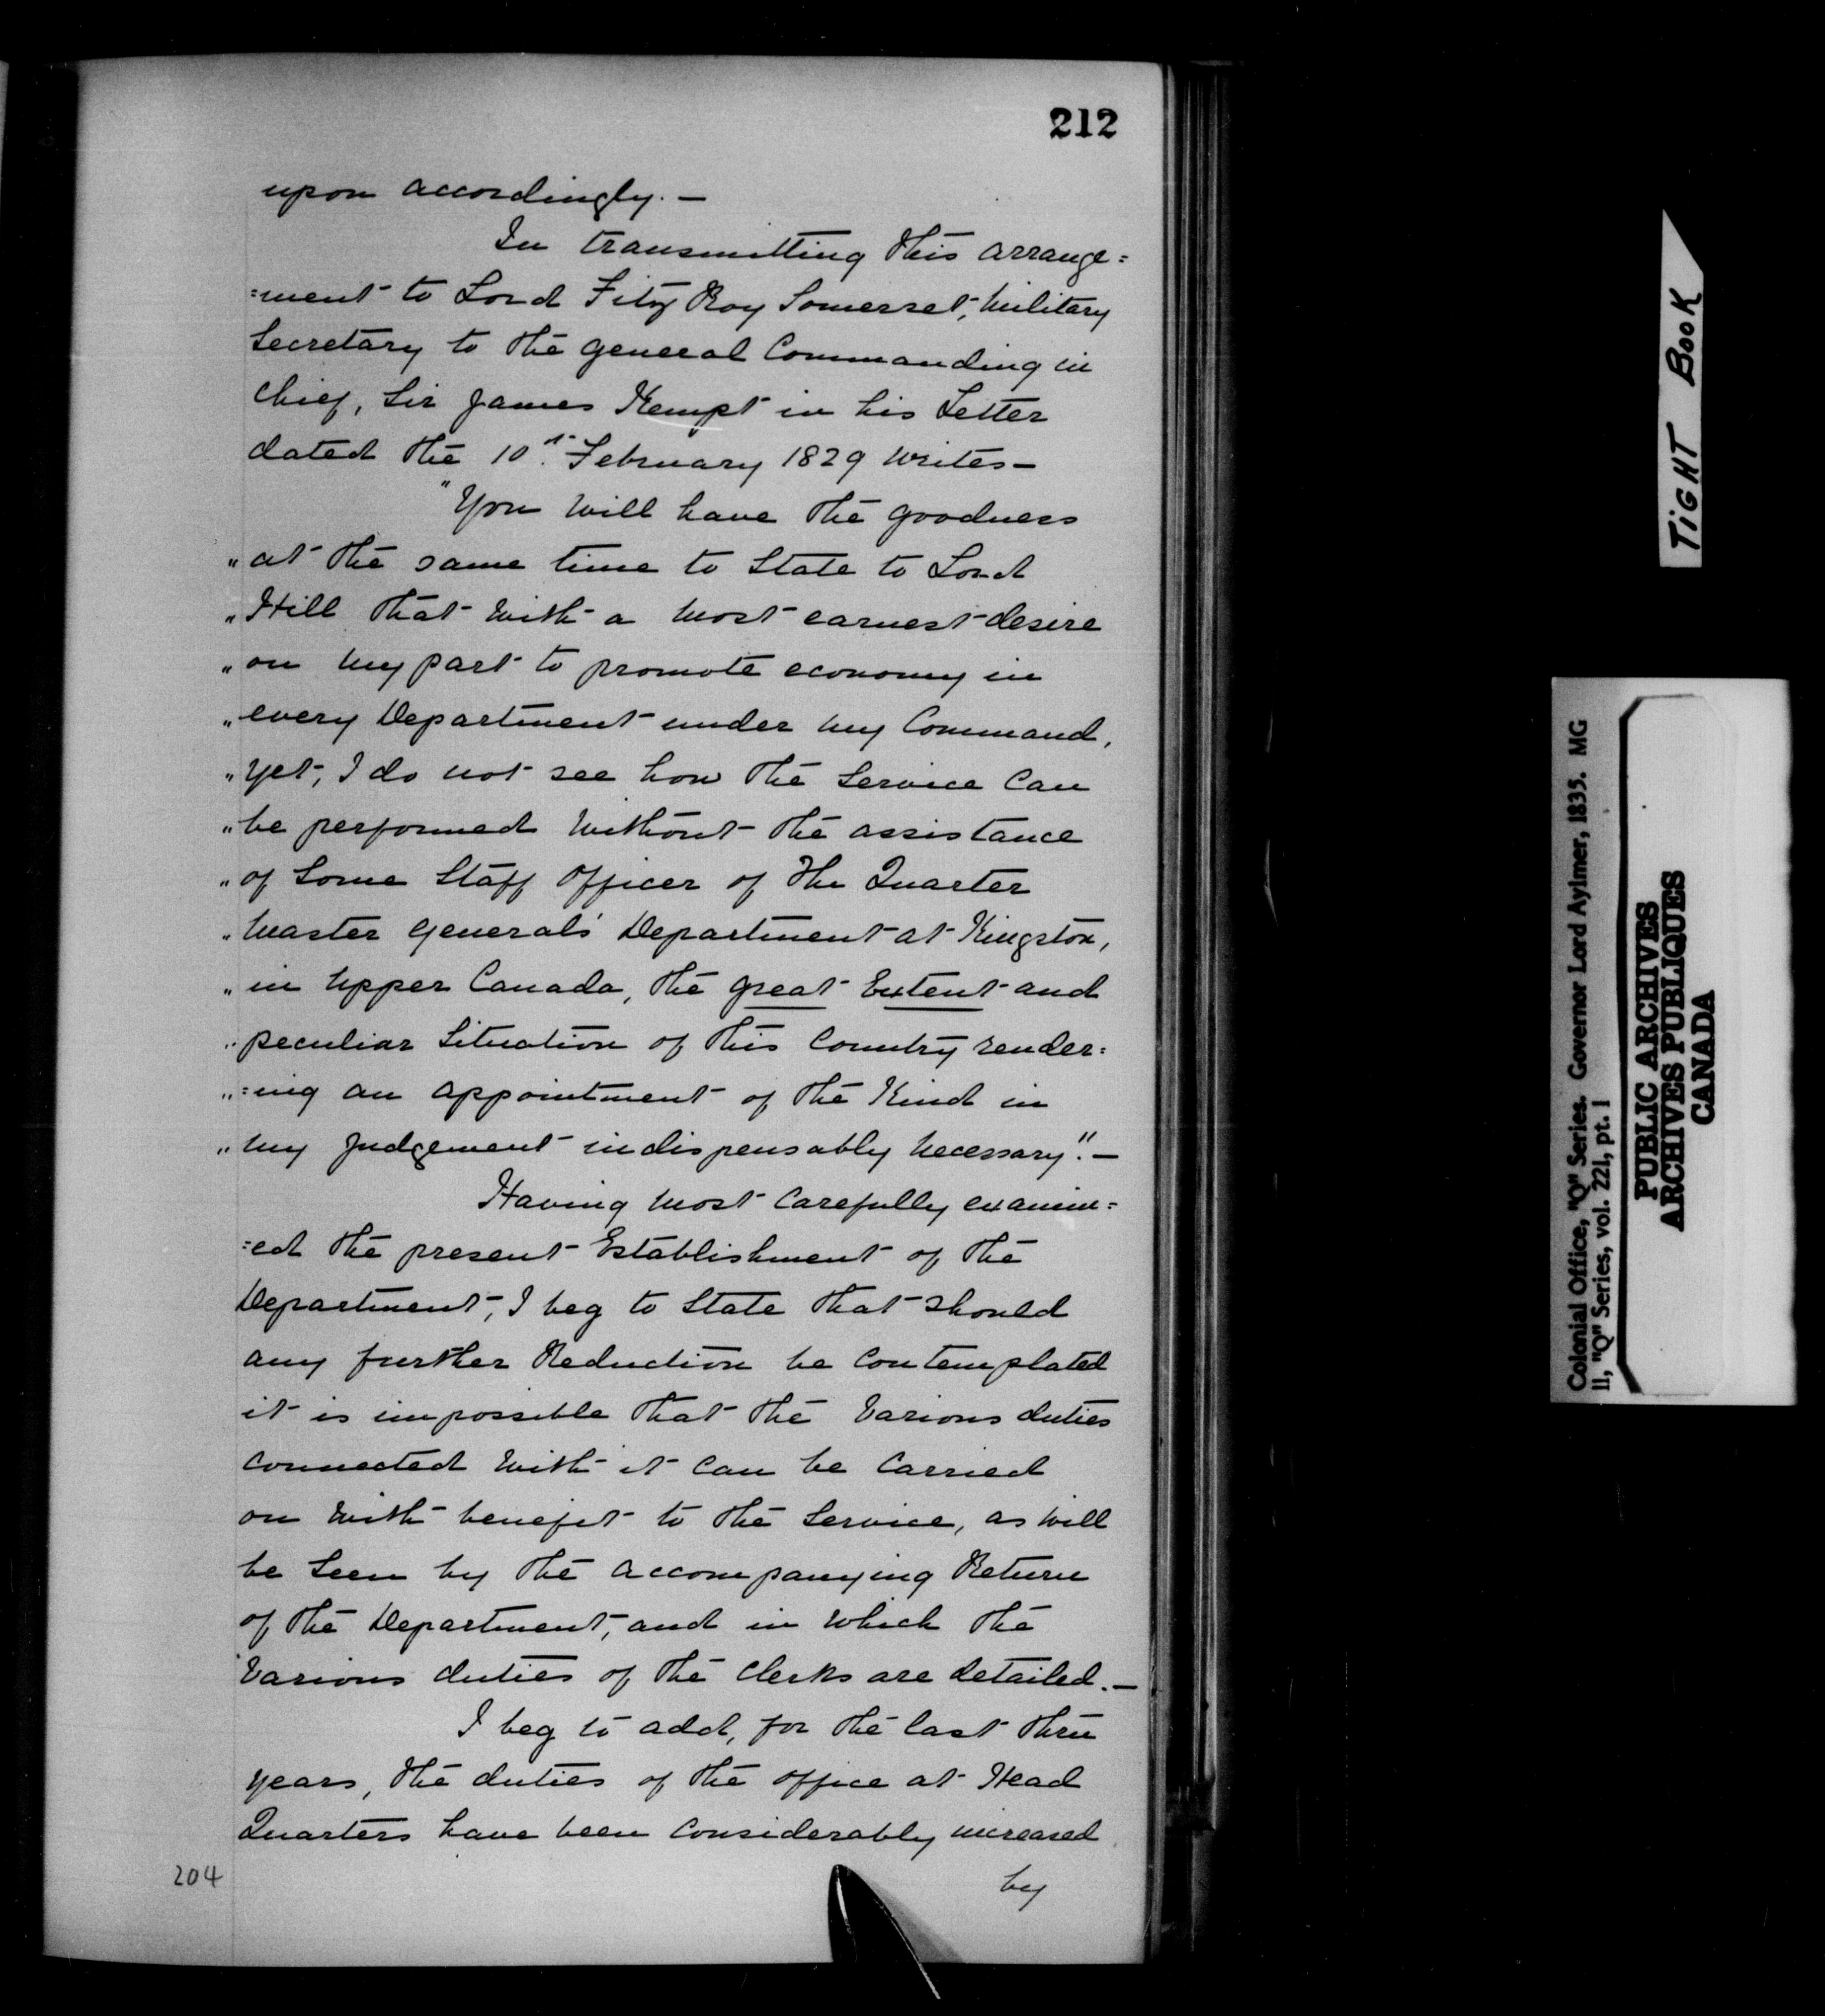 212
upon accordingly. —
In transmitting this arrange=
=ment to Lord Fitz Roy Somerset, Military
Secretary to the General Commanding in
Chief, Sir James Kempt in his Letter
dated the 10th February 1829 writes —
"You will have the goodness
"at the same time to State to Lord
"Hill that with a most earnest desire
"on my part to promote economy in
"every Department under my Command,
"yet, I do not see how the Service can
"be performed without the assistance
"of some Staff Officer of the Quarter
"Master General's Department at Kingston,
"in Upper Canada, the great Extent and
"peculiar Situation of this Country render=
"=ing an appointment of the Kind in
"my Judgement indispensably necessary." —
Having most carefully examin=
=ed the present Establishment of the
Department, I beg to State that should
any further Reduction be contemplated
it is impossible that the various duties
connected with it can be carried
on with benefit to the Service, as will
be seen by the accompanying Return
of the Department, and in which the
various duties of the Clerks are detailed. —
I beg to add, for the last three
years, the duties of the office at Head
Quarters have been considerably increased
by
204
TIGHT BOOK
Colonial Office, "Q" Series. Governor Lord Aylmer, 1835. MG
11, "Q" Series, vol. 221, pt. 1
PUBLIC ARCHIVES
ARCHIVES PUBLIQUES
CANADA